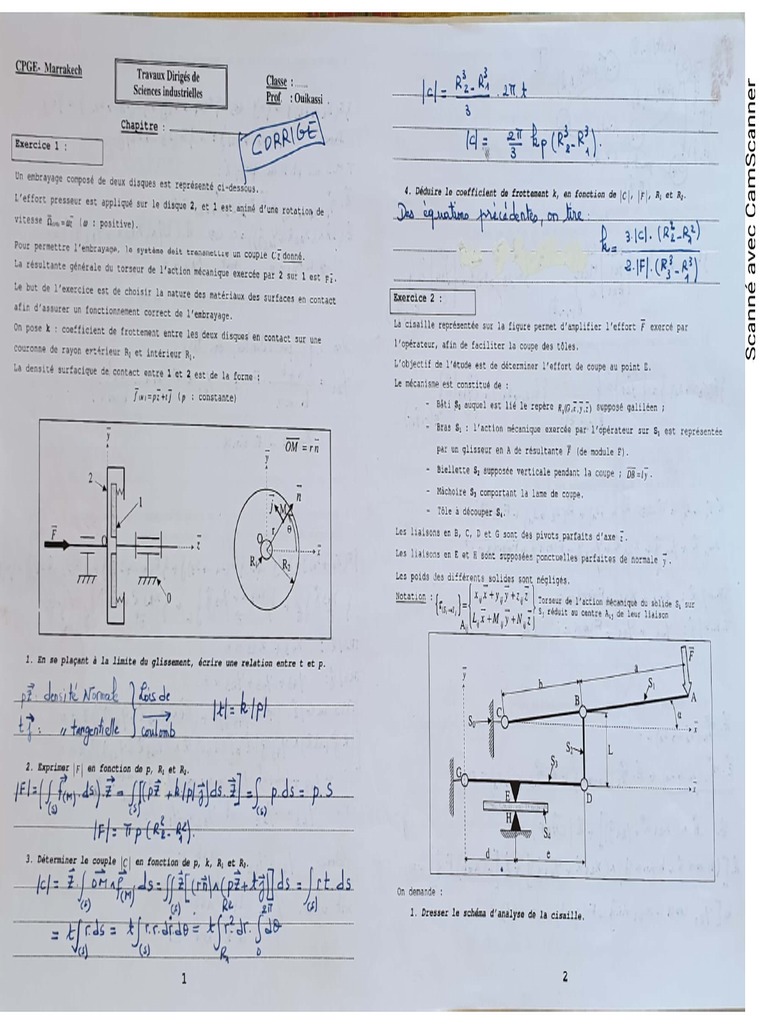 CPGE- Marrakech
Travaux Dirigés de
Sciences industrielles
Classe : .....
Prof : Ouikassi
Chapitre : ____________
CORRIGÉ
Exercice 1 :
Un embrayage composé de deux disques est représenté ci-dessous.
L'effort presseur est appliqué sur le disque 2, et 1 est animé d'une rotation de
vitesse Ω⃗₁/₀=ωz⃗ (ω : positive).
Pour permettre l'embrayage, le système doit transmettre un couple Cz⃗ donné.
La résultante générale du torseur de l'action mécanique exercée par 2 sur 1 est Fz⃗.
Le but de l'exercice est de choisir la nature des matériaux des surfaces en contact
afin d'assurer un fonctionnement correct de l'embrayage.
On pose k : coefficient de frottement entre les deux disques en contact sur une
couronne de rayon extérieur R₂ et intérieur R₁.
La densité surfacique de contact entre 1 et 2 est de la forme :
f⃗(M)=pz⃗+tj⃗ (p : constante)
y⃗
2
1
F⃗
O
z⃗
0
OM⃗ = r n⃗
y⃗
n⃗
j⃗
M
r
θ
O
x⃗
R₁
R₂
1. En se plaçant à la limite du glissement, écrire une relation entre t et p.
pz⃗: densité Normale } Lois de
tj⃗: " tangentielle } coulomb
|t| = k|p|
2. Exprimer |F| en fonction de p, R₁ et R₂.
|F| = (∫(S) f⃗(M).ds).z⃗ = ∫∫(S)[(pz⃗ + k|p|j⃗)ds.z⃗] = ∫(S) p.ds = p.S
|F| = π p (R₂² - R₁²).
3. Déterminer le couple |C| en fonction de p, k, R₁ et R₂.
|C| = z⃗ ∫(S) OM⃗ ∧ f⃗(M) ds = ∫∫(S) z⃗[(rn⃗)∧(pz⃗+tj⃗)]ds = ∫(S) r t.ds
= t∫(S) r.ds = t∫(S) r.r.dr dθ = t∫R₁^R₂ r².dr. ∫0^2π dθ
1
|C| = (R₂³ - R₁³)/3 . 2π t
|C| = 2π/3 k p (R₂³ - R₁³).
4. Déduire le coefficient de frottement k, en fonction de |C|, |F|, R₁ et R₂.
Des équations précédentes, on tire :
k = 3.|C|.(R₂² - R₁²) / 2.|F|.(R₃³ - R₁³)
Exercice 2 :
La cisaille représentée sur la figure permet d'amplifier l'effort F⃗ exercé par
l'opérateur, afin de faciliter la coupe des tôles.
L'objectif de l'étude est de déterminer l'effort de coupe au point E.
Le mécanisme est constitué de :
- Bâti S₀ auquel est lié le repère R₀(G,x⃗,y⃗,z⃗) supposé galiléen ;
- Bras S₁ : l'action mécanique exercée par l'opérateur sur S₁ est représentée
par un glisseur en A de résultante F⃗ (de module F).
- Biellette S₂ supposée verticale pendant la coupe ; DB⃗=ly⃗.
- Mâchoire S₃ comportant la lame de coupe.
- Tôle à découper S₄.
Les liaisons en B, C, D et G sont des pivots parfaits d'axe z⃗.
Les liaisons en E et H sont supposées ponctuelles parfaites de normale y⃗.
Les poids des différents solides sont négligés.
Notation : {τ(Si→Sj)} = Aij {Xij x⃗ + yij y⃗ + zij z⃗ ; Lij x⃗ + Mij y⃗ + Nij z⃗} Torseur de l'action mécanique du solide Si sur
Sj réduit au centre Aij de leur liaison
y⃗
a
b
F⃗
S₁
A
B
C
S₀
α
x⃗
S₂
L
S₃
G
D
x⃗
E
H
S₄
d
e
On demande :
1. Dresser le schéma d'analyse de la cisaille.
2
Scanné avec CamScanner